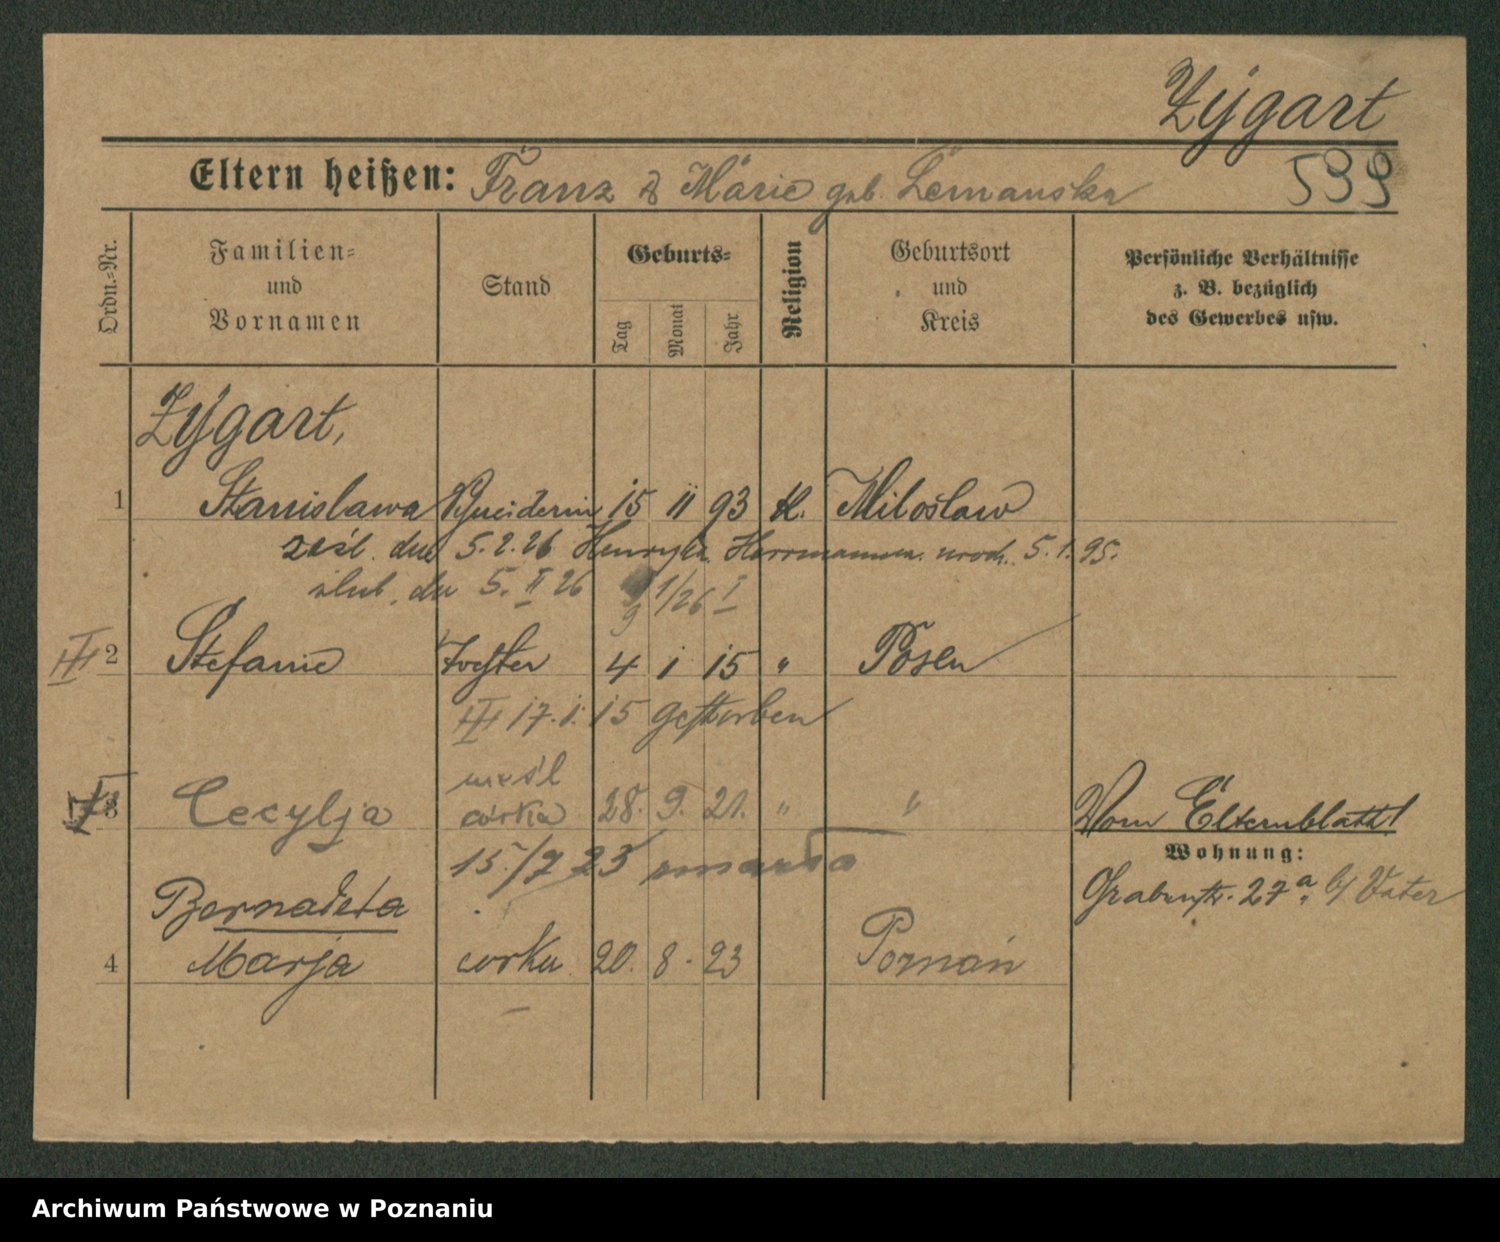 Zÿgart
Eltern heißen: Franz & Marie geb. Lemanska
599
Ordn.-Nr.
Familien- und Vornamen
Stand
Geburts-
Tag
Monat
Jahr
Religion
Geburtsort und Kreis
Persönliche Verhältnisse z. B. bezüglich des Gewerbes usw.
Zÿgart,
1 Stanislawa Schneiderin 15 11 93 K. Miloslaw
zaśl. dnia 5.2.26 Henryka Herrmanna urodz. 5.1.95.
ślub. dn 5. II 26 1/26 I
III 2 Stefanie Tochter 4 1 15 " Posen
III 17. 1. 15 gestorben
3 Cecylja nieśl córka 28. 9. 21. " "
Vom Elternblatt!
15./7 23 zmarła
Wohnung:
Grabenstr. 27a b/ Vater
Bernadeta
4 Marja corka 20. 8. 23 Poznań
Archiwum Państwowe w Poznaniu